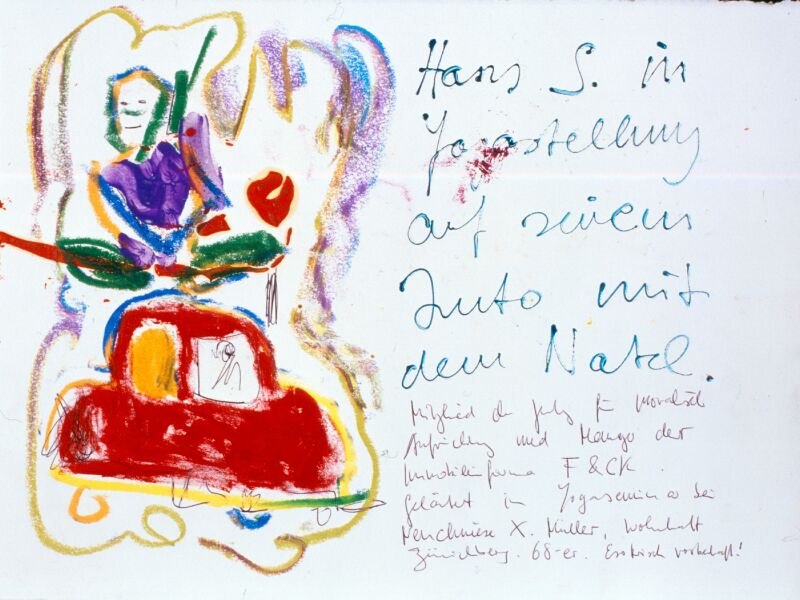 Hans S. in
Yogastellung
auf seinem
Auto mit
dem Natel.
Mitglied der Jury für moralische
Aufrichtung und Manager der
Immobilienfirma F & CK.
geläutert im Yogaseminar bei
X. Müller, wohnhaft
Zürichberg. 68-er. vorbehaft!